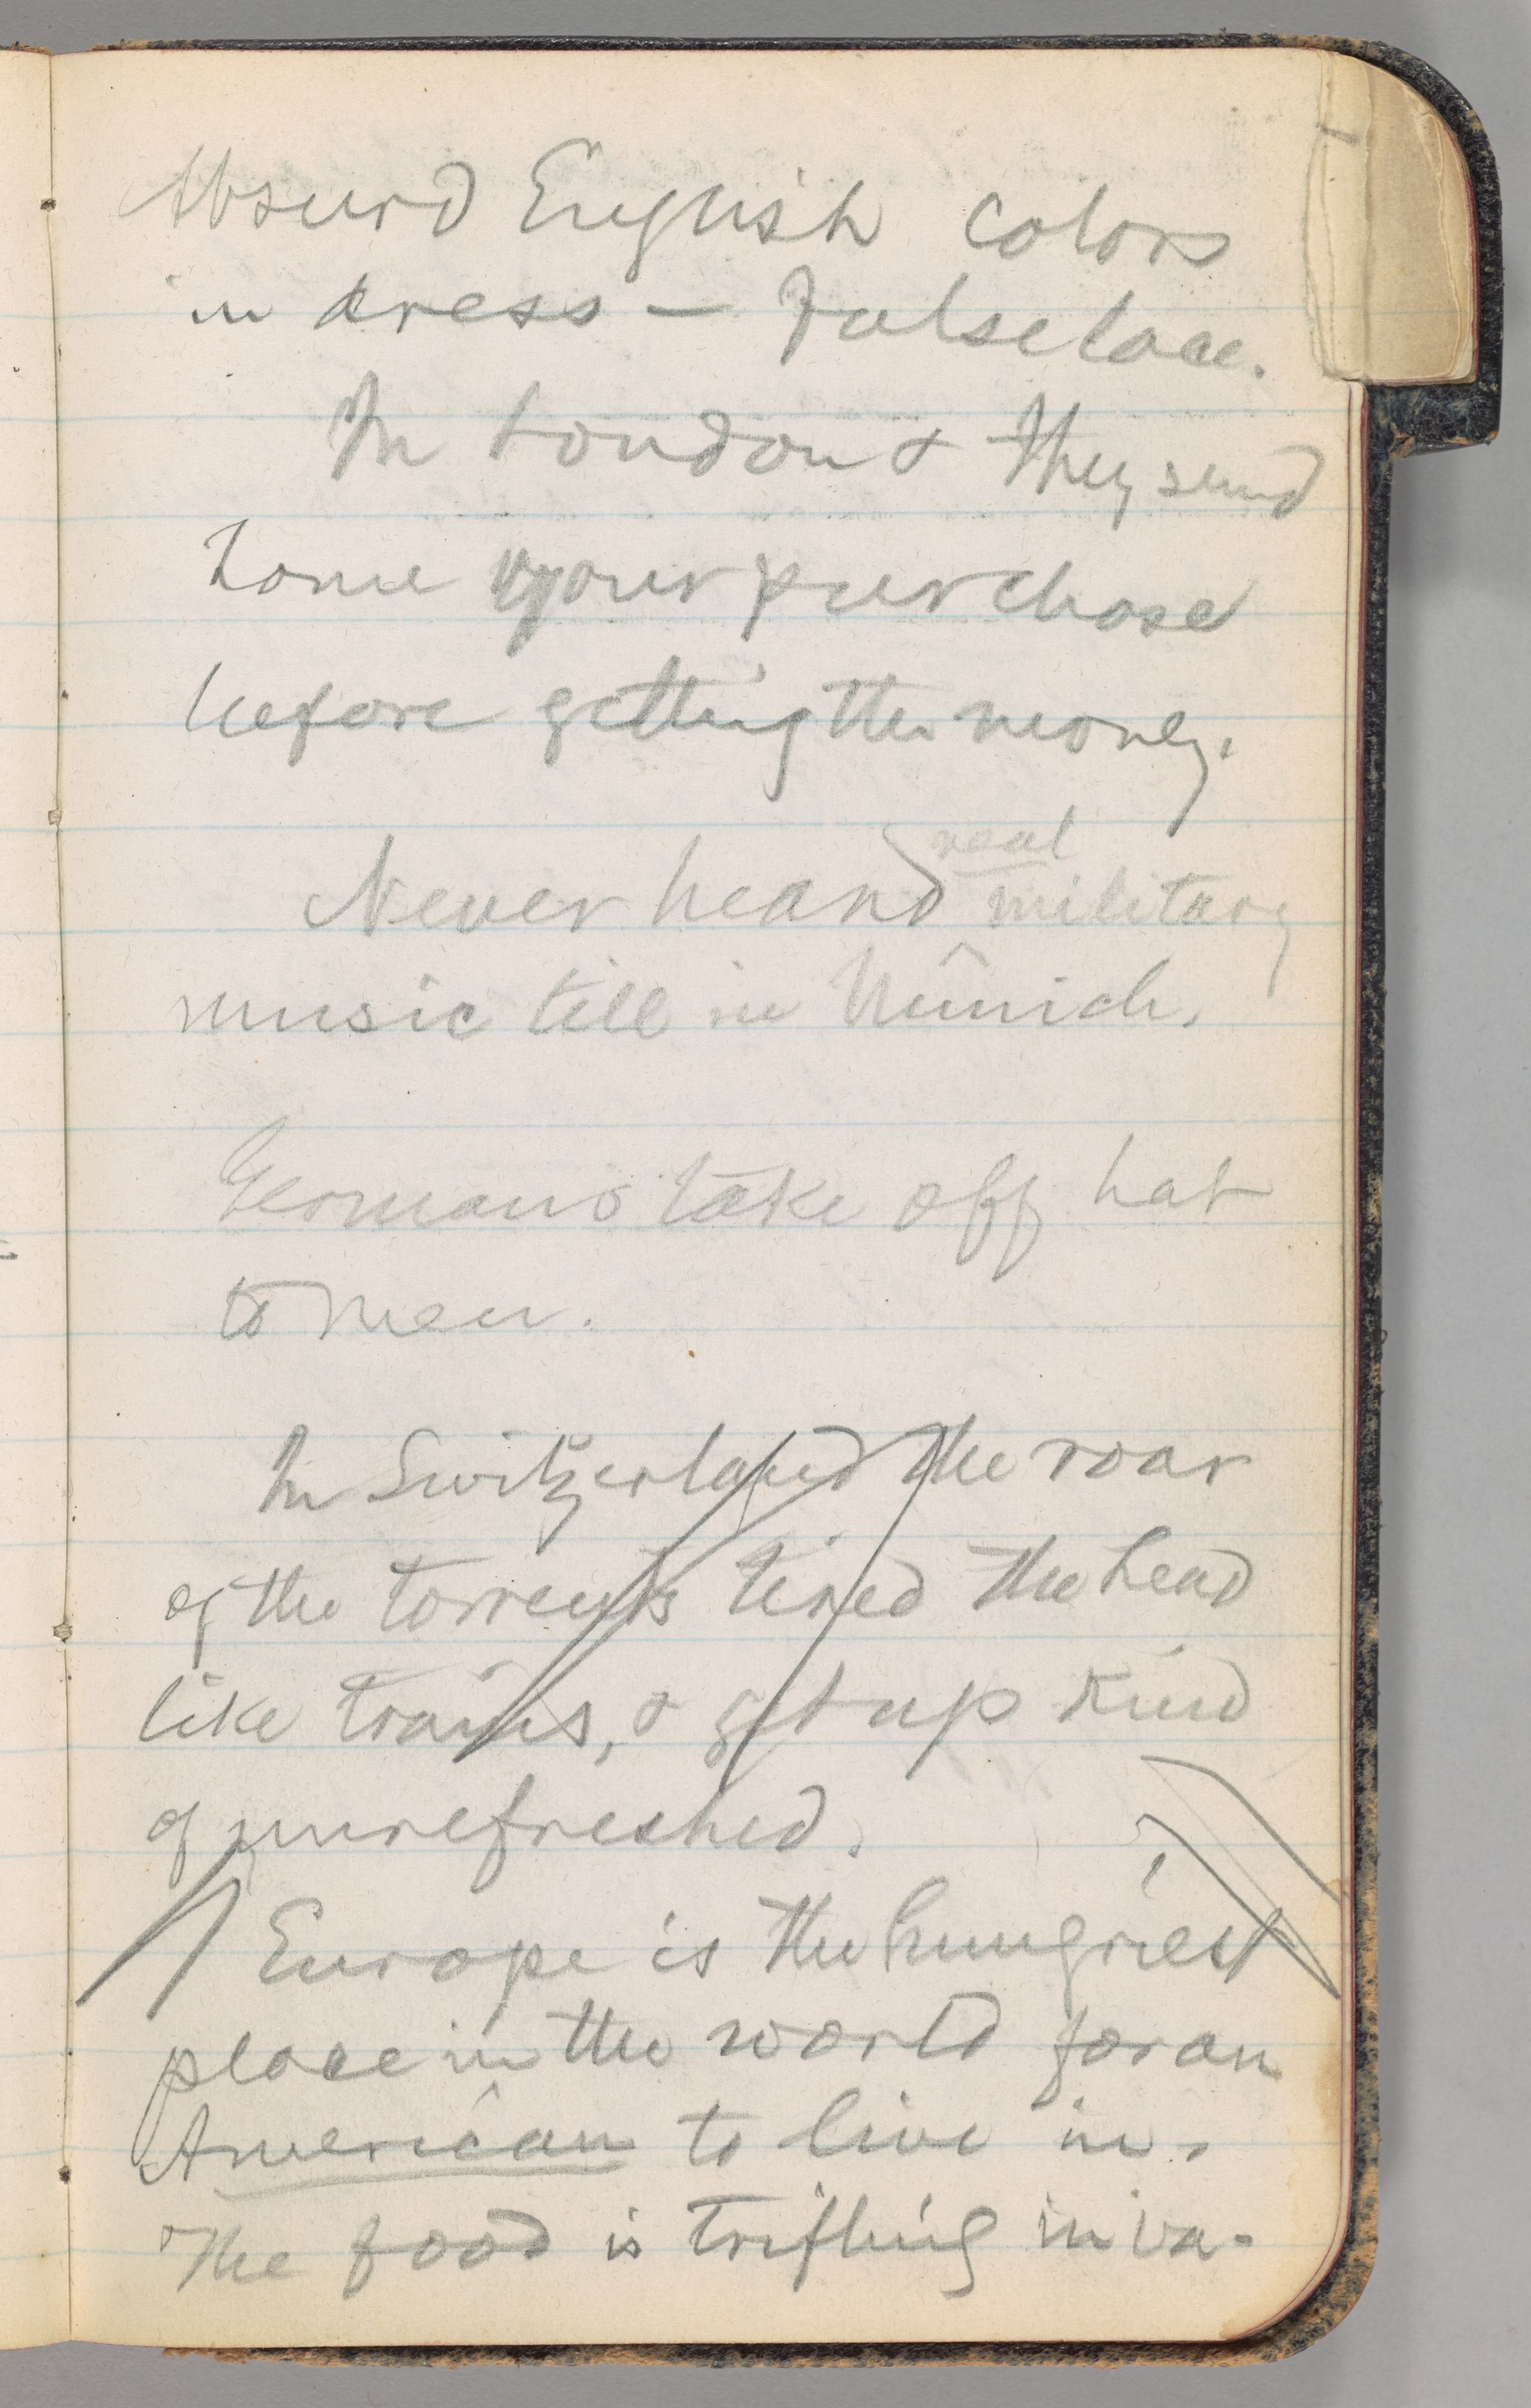 Absurd English colors
in dress — False lace.
In London & they send
home your purchase
before getting the money.
Never heard real military
music till in Munich.
Germans take off hat
to men.
In Switzerland the roar
of the torrents tired the head
like trains, & get up kind
of unrefreshed.
Europe is the hungriest
place in the world for an
American to live in.
The food is trifling in va-